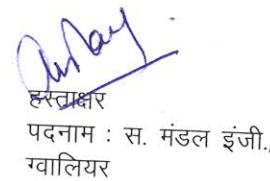 हस्ताक्षर
पदनाम : स. मंडल इंजी.,
ग्वालियर